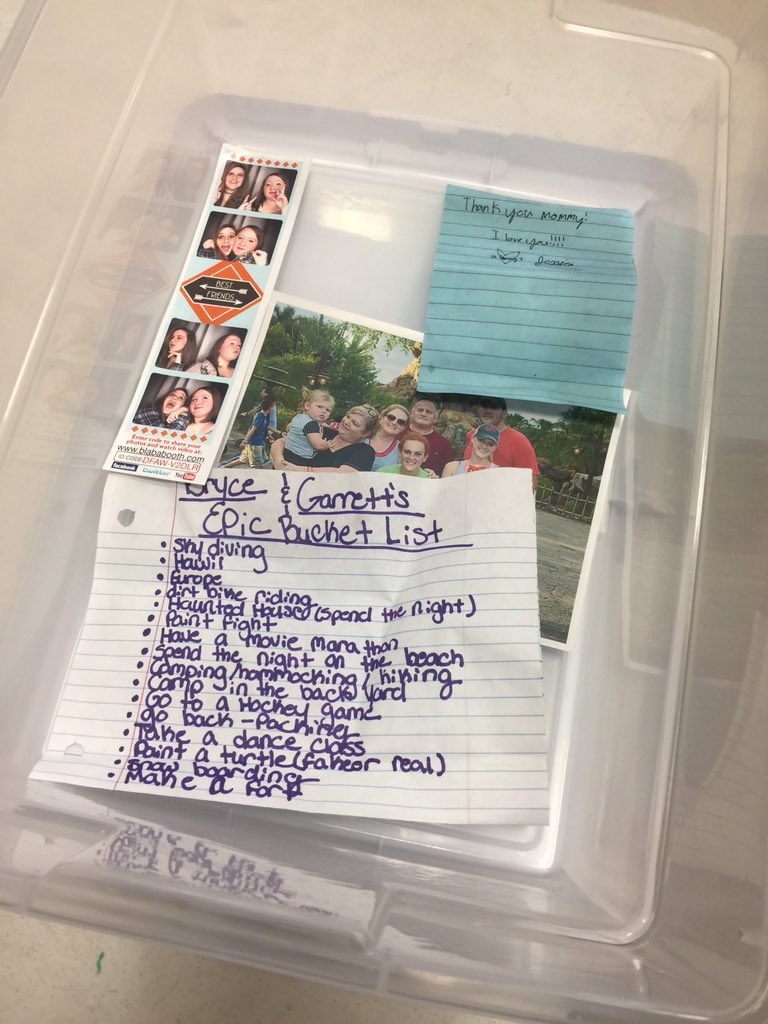 BEST
FRIENDS
Enter code to share your
photos and watch video at:
www.blabooth.com
ID CODE: DFAW-V2DLR
facebook twitter YouTube
Thank you mommy!
I love you!!!!
Jessica
Bryce & Garrett's
Epic Bucket List
• Sky diving
• Hawii
• Europe
• dirt bike riding
• Haunted House (spend the night)
• Paint Fight
• Have a movie marathon
• Spend the night on the beach
• Camping/hammocking/hiking
• Camp in the back yard
• Go to a Hockey game
• go back-packing
• Take a dance class
• Paint a turtle (fake or real)
• Snow boarding
• Make a fort